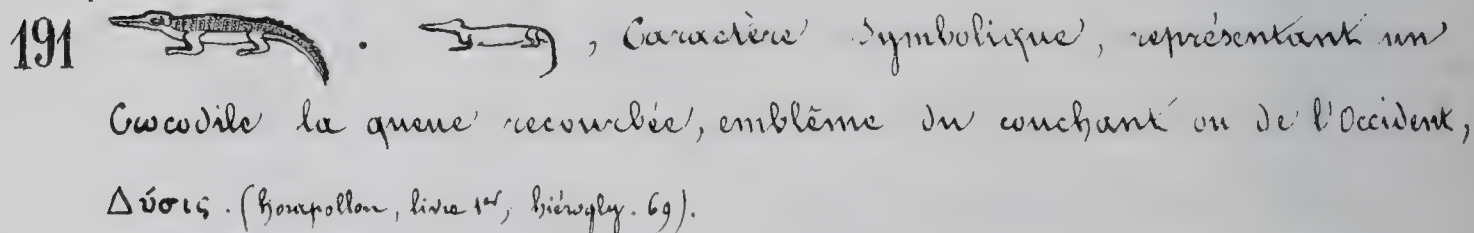 191 . , Caractère Symbolique, représentant un
Crocodile la queue recourbée, emblême du couchant ou de l'Occident,
Δύσις. (horapollon, livre 1er, hiérogly. 69).